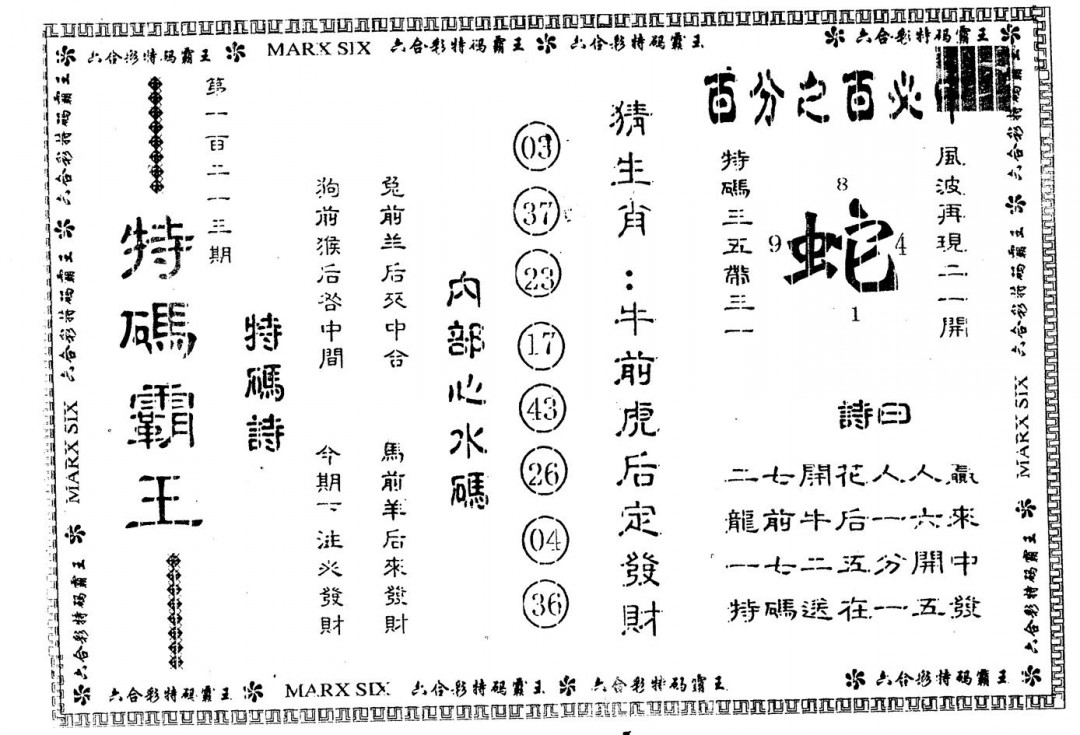 六合彩特码霸王 MARX SIX 六合彩特码霸王 六合彩特码霸王
六合彩特码霸王
百分之百必中
風波再現二一開
8
9 蛇 4
1
特碼三五帶三一
詩曰
二七開花人人贏
龍前牛后一六來
一七二五分開中
特碼送在一五發
猜生肖:牛前虎后定發財
03
37
23
17
43
26
04
36
内部心水碼
兔前兰后夾中合
馬前羊后來發財
狗前猴后在中間
今期下注必發財
特碼詩
第一百二一三期
特碼霸王
六合彩特码霸王 六合彩特码霸王
MARX SIX
六合彩特码霸王
六合彩特码霸王 六合彩特码霸王
MARX SIX
六合彩特码霸王
六合彩特码霸王 MARX SIX 六合彩特码霸王 六合彩特码霸王
六合彩特码霸王